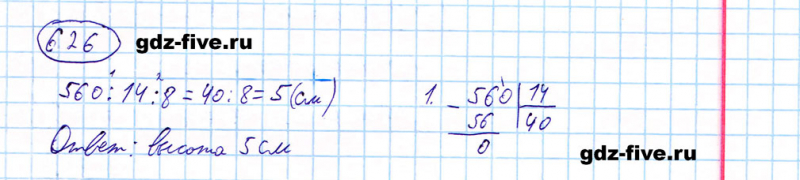 626 gdz-five.ru
560 : 14 : 8 = 40 : 8 = 5 (см)
Ответ: высота 5 см
1. 560 | 14
- 56 | 40
0
gdz-five.ru